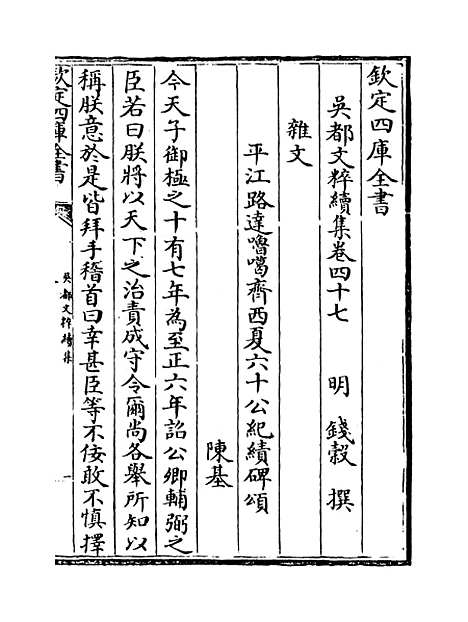 欽定四庫全書
吳都文粹續集卷四十七 明 錢榖 撰
雜文
平江路達嚕噶齊西夏六十公紀績碑頌
陳基
今天子御極之十有七年為至正六年詔公卿輔弼之
臣若曰朕將以天下之治責成守令爾尚各舉所知以
稱朕意於是皆拜手稽首曰幸甚臣等不佞敢不慎擇
欽定四庫全書
吳都文粹續集
一